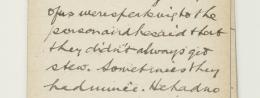 of us were speaking to the
person and he said that
they didn't always get
stew. Sometimes they
had mince. He had no